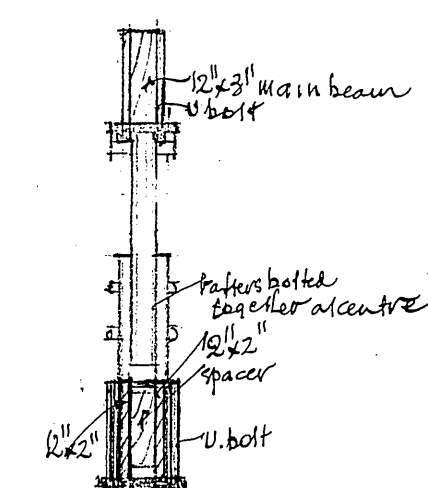 12"x3" main beam
U.bolt
Rafters bolted
together at centre
12"x2"
spacer
12"x2"
U.bolt